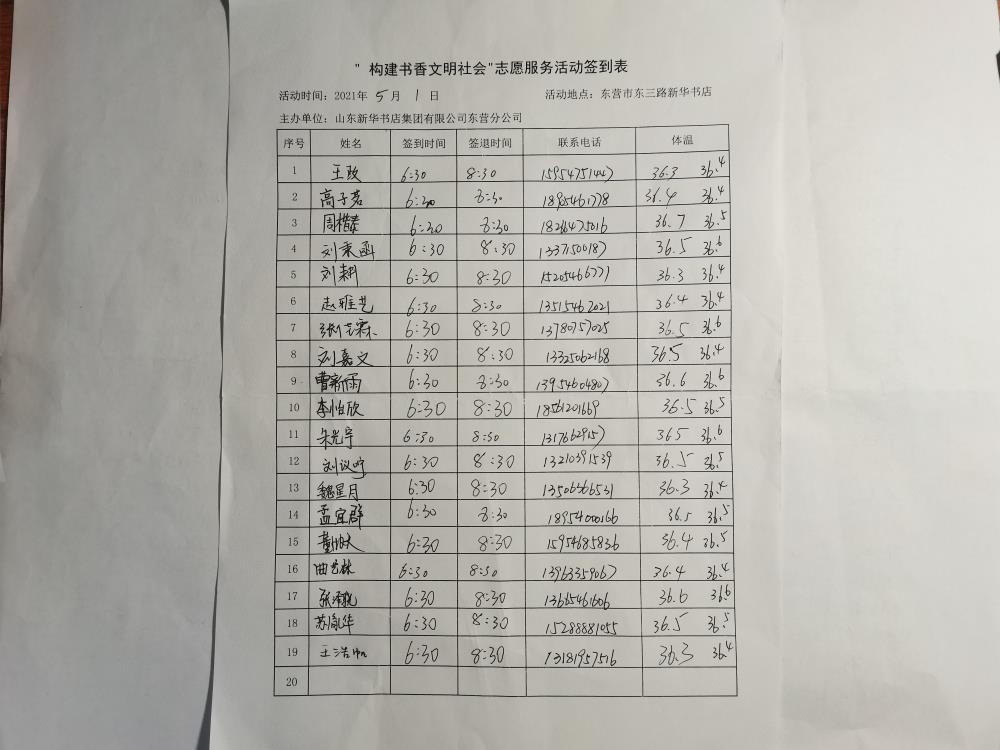 "构建书香文明社会"志愿服务活动签到表
活动时间：2021年 5 月 1 日 活动地点：东营市东三路新华书店
主办单位：山东新华书店集团有限公司东营分公司
序号 姓名 签到时间 签退时间 联系电话 体温
1 王政 6:30 8:30 15954751447 36.3 36.4
2 高子茗 6:30 8:30 1895461778 36.4 36.4
3 6:30 8:30 18266475016 36.7 36.5
4 刘秉函 6:30 8:30 13371500187 36.5 36.6
5 刘耕 6:30 8:30 15205466771 36.3 36.4
6 赵雅艺 6:30 8:30 13515462021 36.4 36.4
7 张艺霖 6:30 8:30 13780757025 36.5 36.6
8 刘嘉文 6:30 8:30 13325062168 36.5 36.4
9 曹新雨 6:30 8:30 13954604807 36.6 36.6
10 李怡欣 6:30 8:30 18561201669 36.5 36.5
11 朱光宇 6:30 8:30 13176629157 365 36.6
12 刘议咛 6:30 8:30 13210391539 36.5 36.5
13 魏星月 6:30 8:30 13506366531 36.3 36.4
14 孟宜群 6:30 8:30 18954000166 36.5 36.5
15 6:30 8:30 15954685836 36.4 36.5
16 曲艺林 6:30 8:30 13963359067 36.4 36.4
17 6:30 8:30 13665461606 36.6 36.6
18 苏胤华 6:30 8:30 15288881055 36.5 36.5
19 王浩帆 6:30 8:30 13181957516 36.3 36.4
20